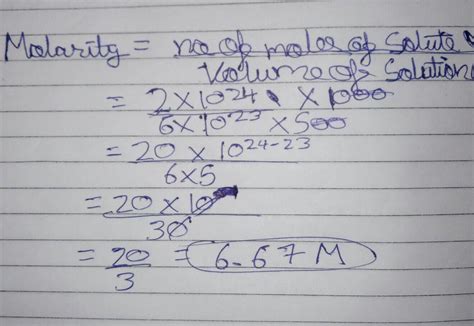 Molarity = no of moles of Solute
Volume of Solution
= 2 × 10²⁴ × 1000
6 × 10²³ × 500
= 20 × 10²⁴⁻²³
6 × 5
= 20 × 10
30
= 20 = 6.67 M
3